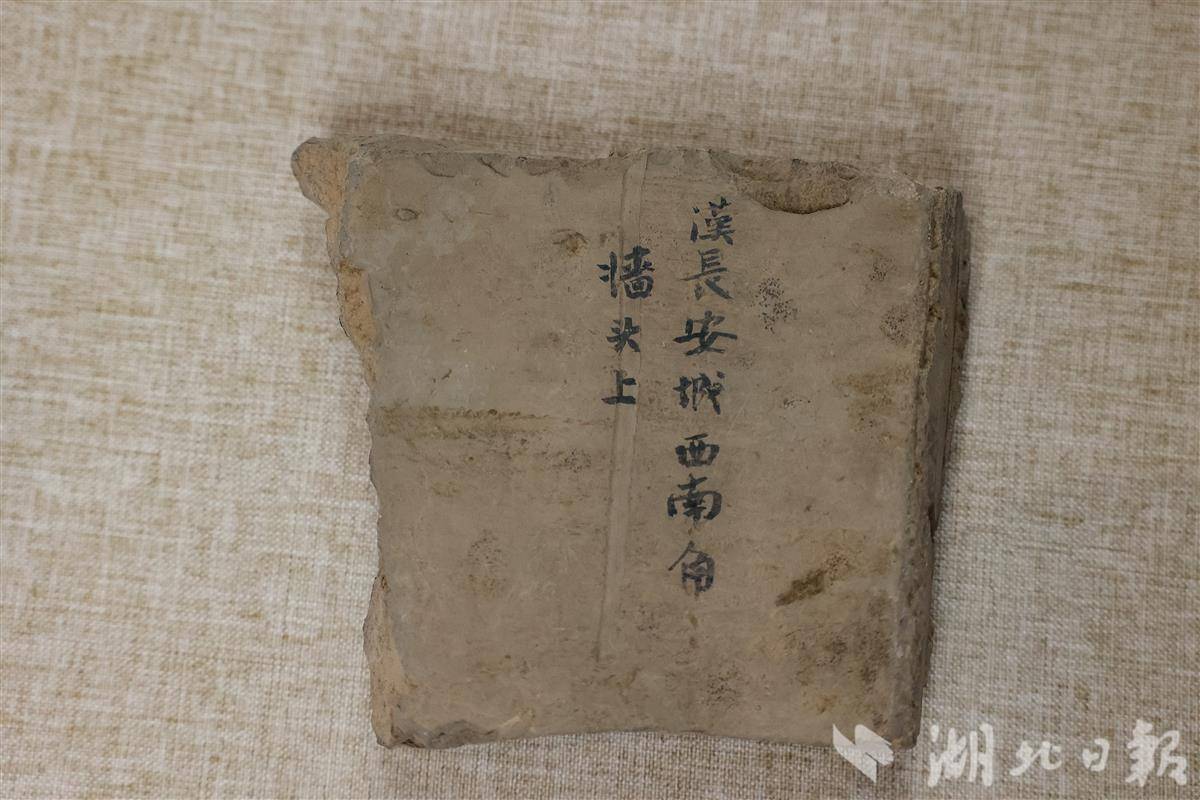 漢長安城西南角
墻头上
湖北日報